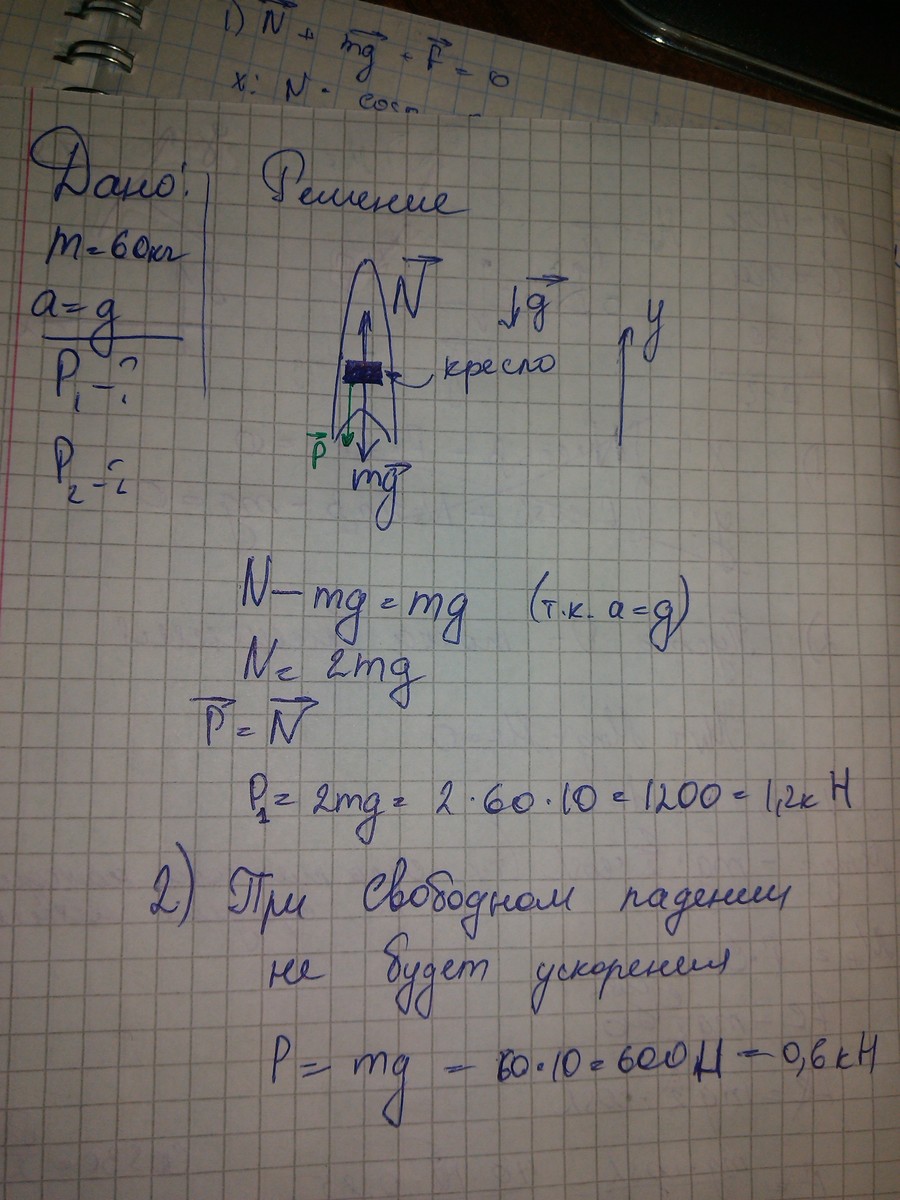 1) N + mg + F = 0
x: N ·
Дано:
Решение
m = 60кг
a = g
P₁ - ?
P₂ - ?
N
g
y
кресло
P
mg
N - mg = mg (т.к. a = g)
N = 2mg
P = N
P₁ = 2mg = 2 · 60 · 10 = 1200 = 1,2кН
2) При свободном падении
не будет ускорения
P = mg = 60 · 10 = 600Н = 0,6кН